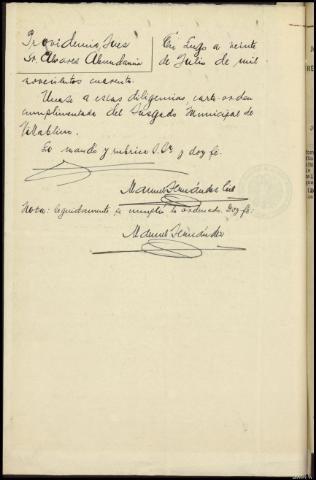 Providencia Juez
Sr. Alvarez Abundancia
En Lugo a veinte
de Julio de mil
novecientos cuarenta.
Unase a estas diligencias, carta-orden
cumplimentada del Juzgado Municipal de
Villablino.
Lo mando y rubrica S.Sª y doy fe.
Manuel Hernández
Nota: Seguidamente se cumplió lo ordenado. Doy fe:
Manuel Hernández